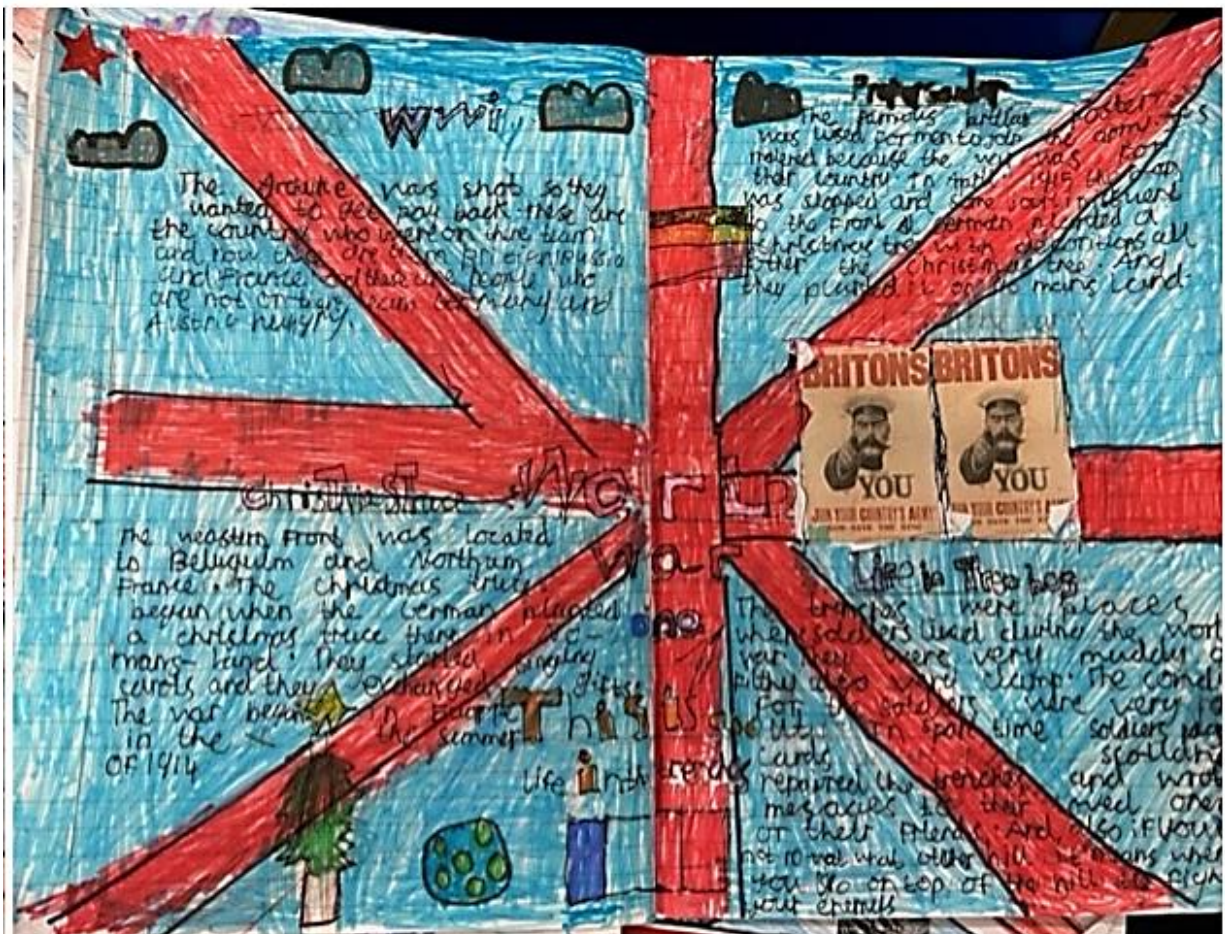 WWI
The Archuke was shot so they
wanted to get pay back these are
the country who were on there team
and now they are from Britian Russia
and France and these are people who
are not on their team Germany and
Austria hungry.
Christmas Truce
The weastern Front was located
in Belugium and Northurn
France. The christmas truce
begun when the German planted
a christmas truce there in no-
mans-land. They started singing
carols and they exchanged gifts
The war began in Europe
in the the summer
OF 1914
World
war
one
This is
Life in the trenches
The famous british poster
was used for men to join the army.
because the war was for
their country In 1915 the
was stopped and some went
to the Front a German planted a
christmas tree with decorations all
other the christmas tree. And
they planted it on no mans land.
BRITONS BRITONS
YOU YOU
JOIN YOUR COUNTRY'S ARMY
JOIN YOUR COUNTRY'S ARMY
Life in Trenches
The trenches were places
where soldiers lived during the worl
war they were very muddy
filthy also very damp. The condi
For the soldiers were very
In spare time soldiers
cards
repaired the trenches and wrote
messages to their loved ones
or their Friends. And also if your
hill it means when
you go on top of the hill to figh
your enemies